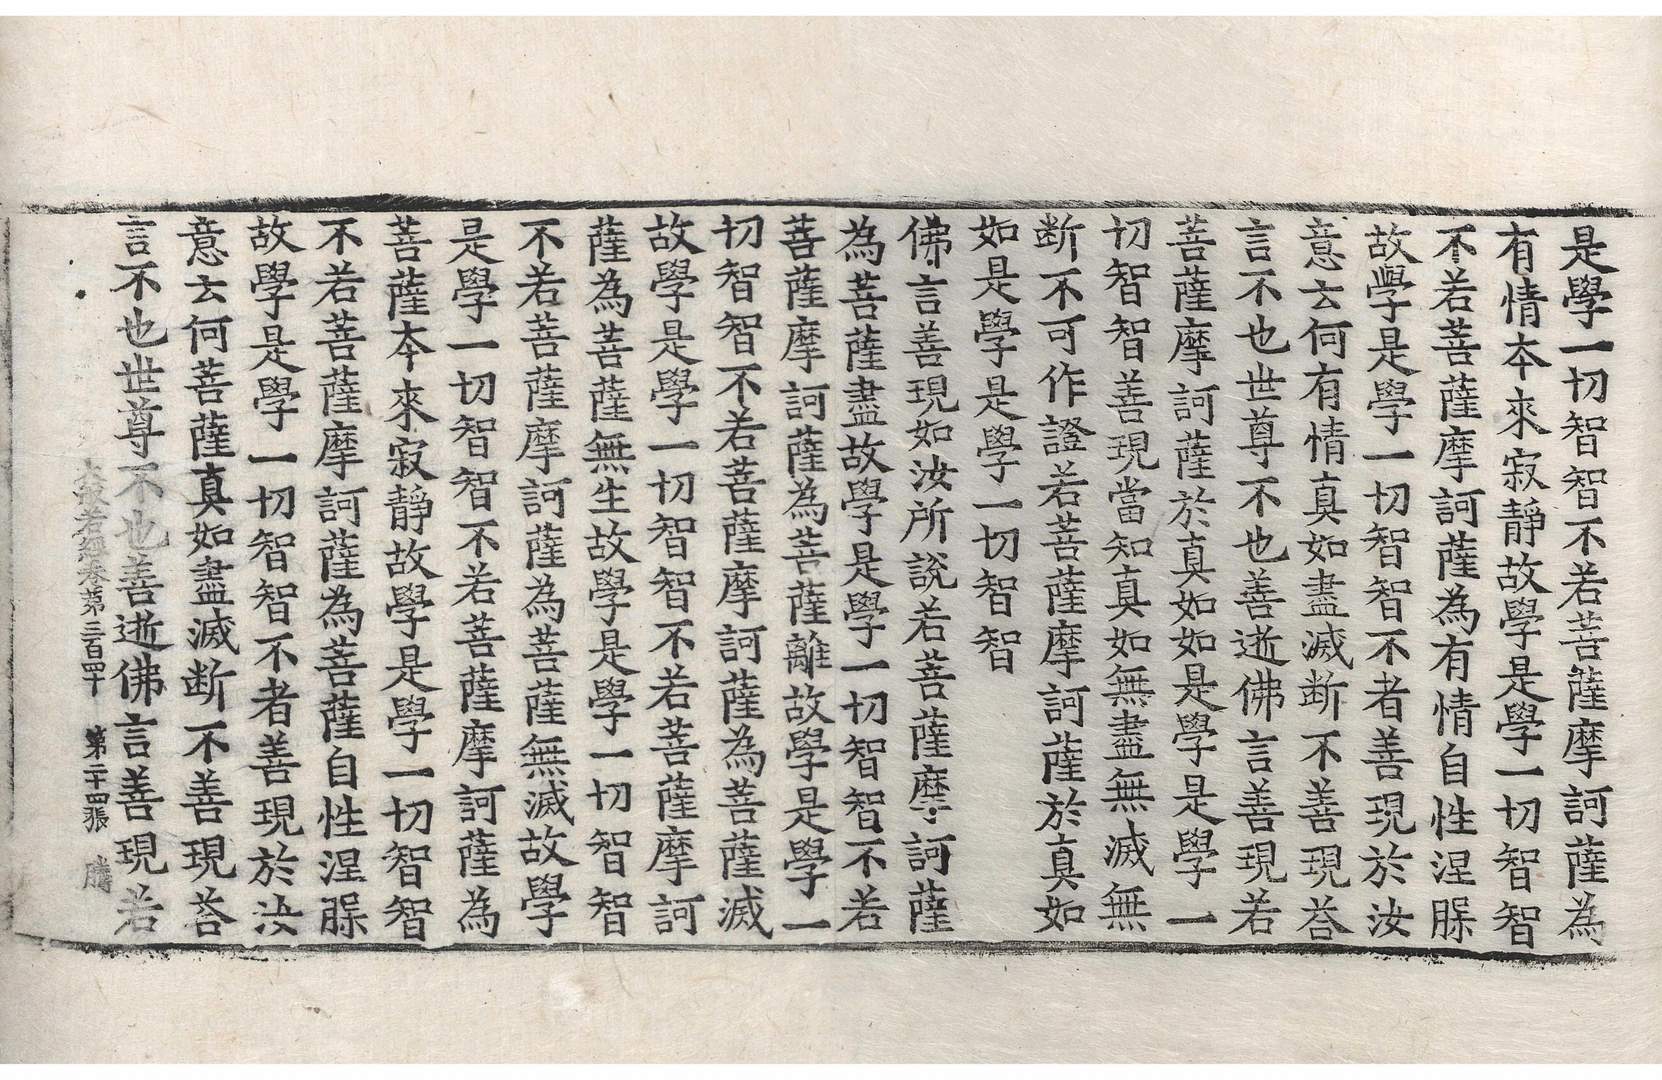 是學一切智智不若菩薩摩訶薩為
有情本來寂靜故學是學一切智智
不若菩薩摩訶薩為有情自性涅槃
故學是學一切智智不者善現於汝
意云何有情真如盡滅断不善現荅
言不也世尊不也善逝佛言善現若
菩薩摩訶薩於真如如是學是學一
切智智善現當知真如無盡無滅無
断不可作證若菩薩摩訶薩於真如
如是學是學一切智智
佛言善現如汝所說若菩薩摩訶薩
為菩薩盡故學是學一切智智不若
菩薩摩訶薩為菩薩離故學是學一
切智智不若菩薩摩訶薩為菩薩滅
故學是學一切智智不若菩薩摩訶
薩為菩薩無生故學是學一切智智
不若菩薩摩訶薩為菩薩無滅故學
是學一切智智不若菩薩摩訶薩為
菩薩本來寂靜故學是學一切智智
不若菩薩摩訶薩為菩薩自性涅槃
故學是學一切智智不者善現於汝
意云何菩薩真如盡滅断不善現荅
言不也世尊不也善逝佛言善現若
大般若經卷第三百四十 第二十四張 騰